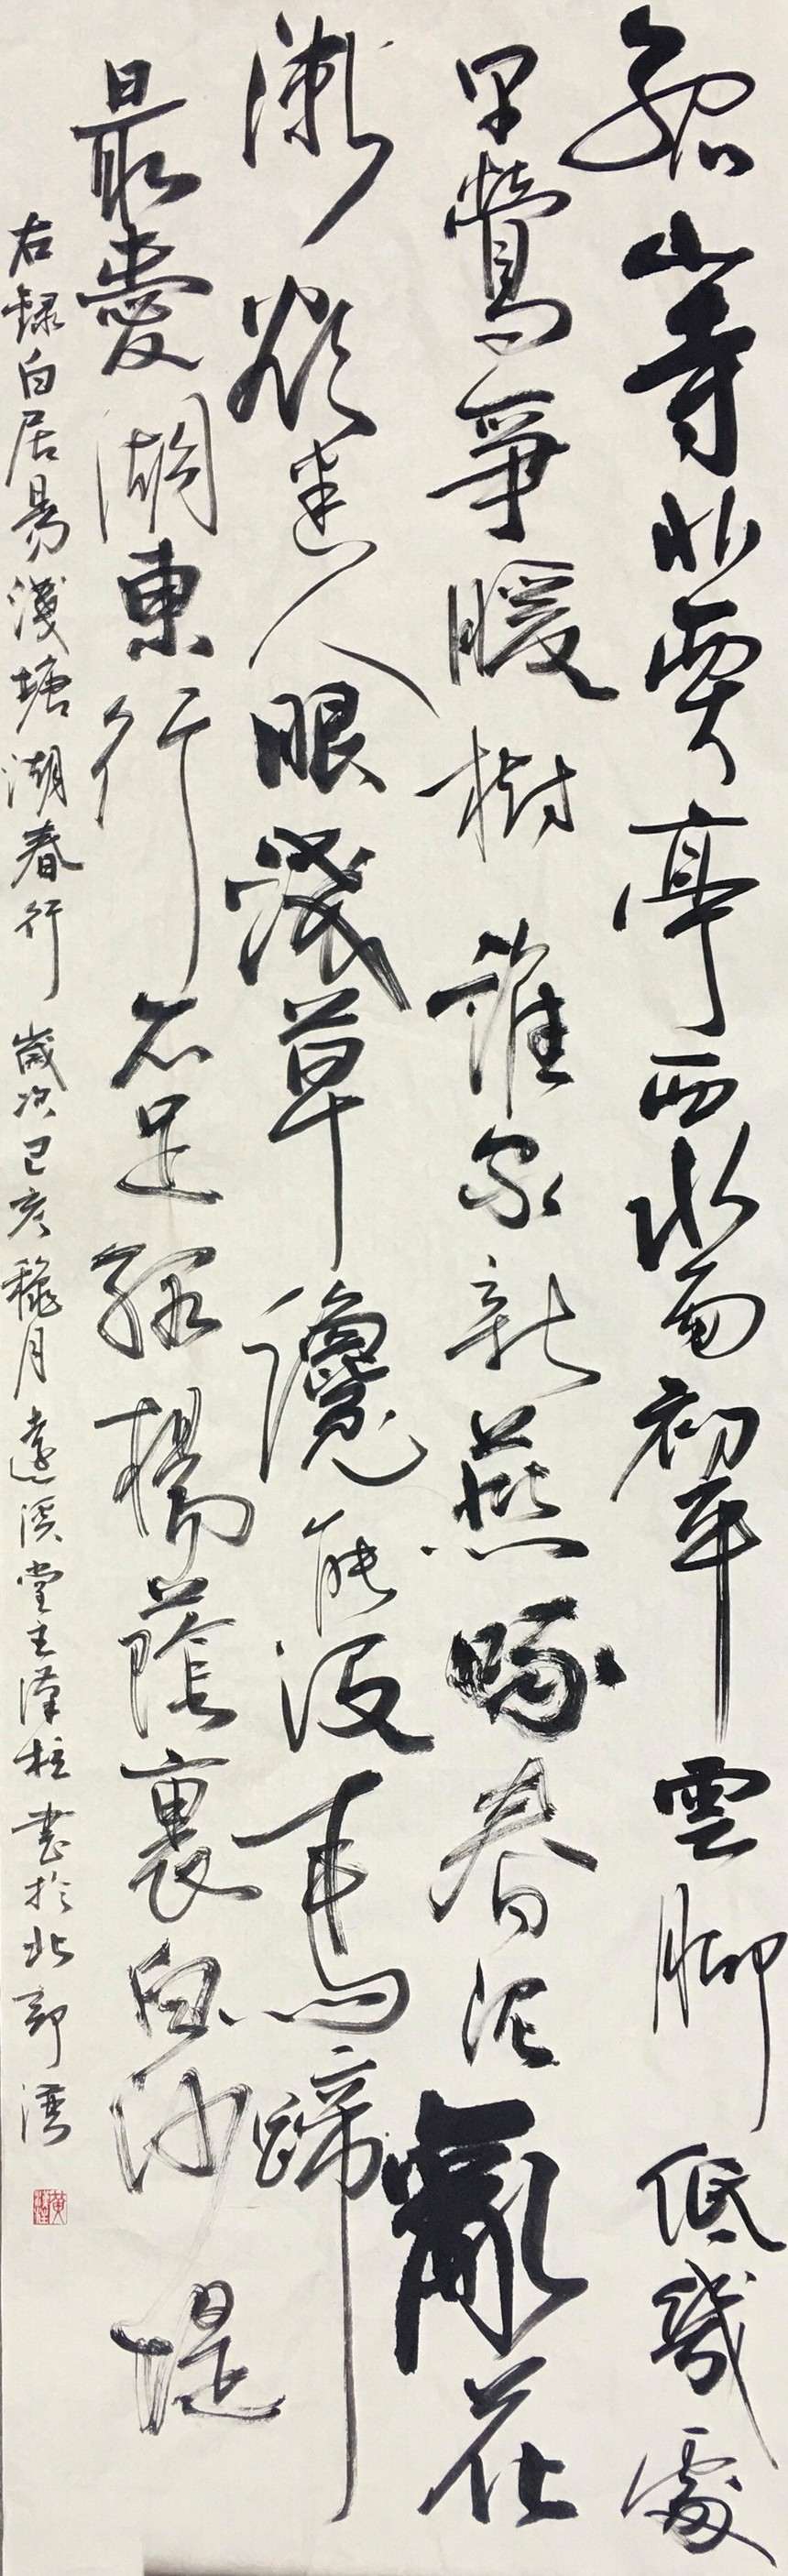 孤山寺北賈亭西水面初平雲脚低幾處
早鶯爭暖樹誰家新燕啄春泥亂花
漸欲迷人眼淺草纔能沒馬蹄
最愛湖東行不足綠楊蔭裏白沙堤
右録白居易淺塘湖春行 歲次己亥穐月遠溪堂主漢柱書於北部灣